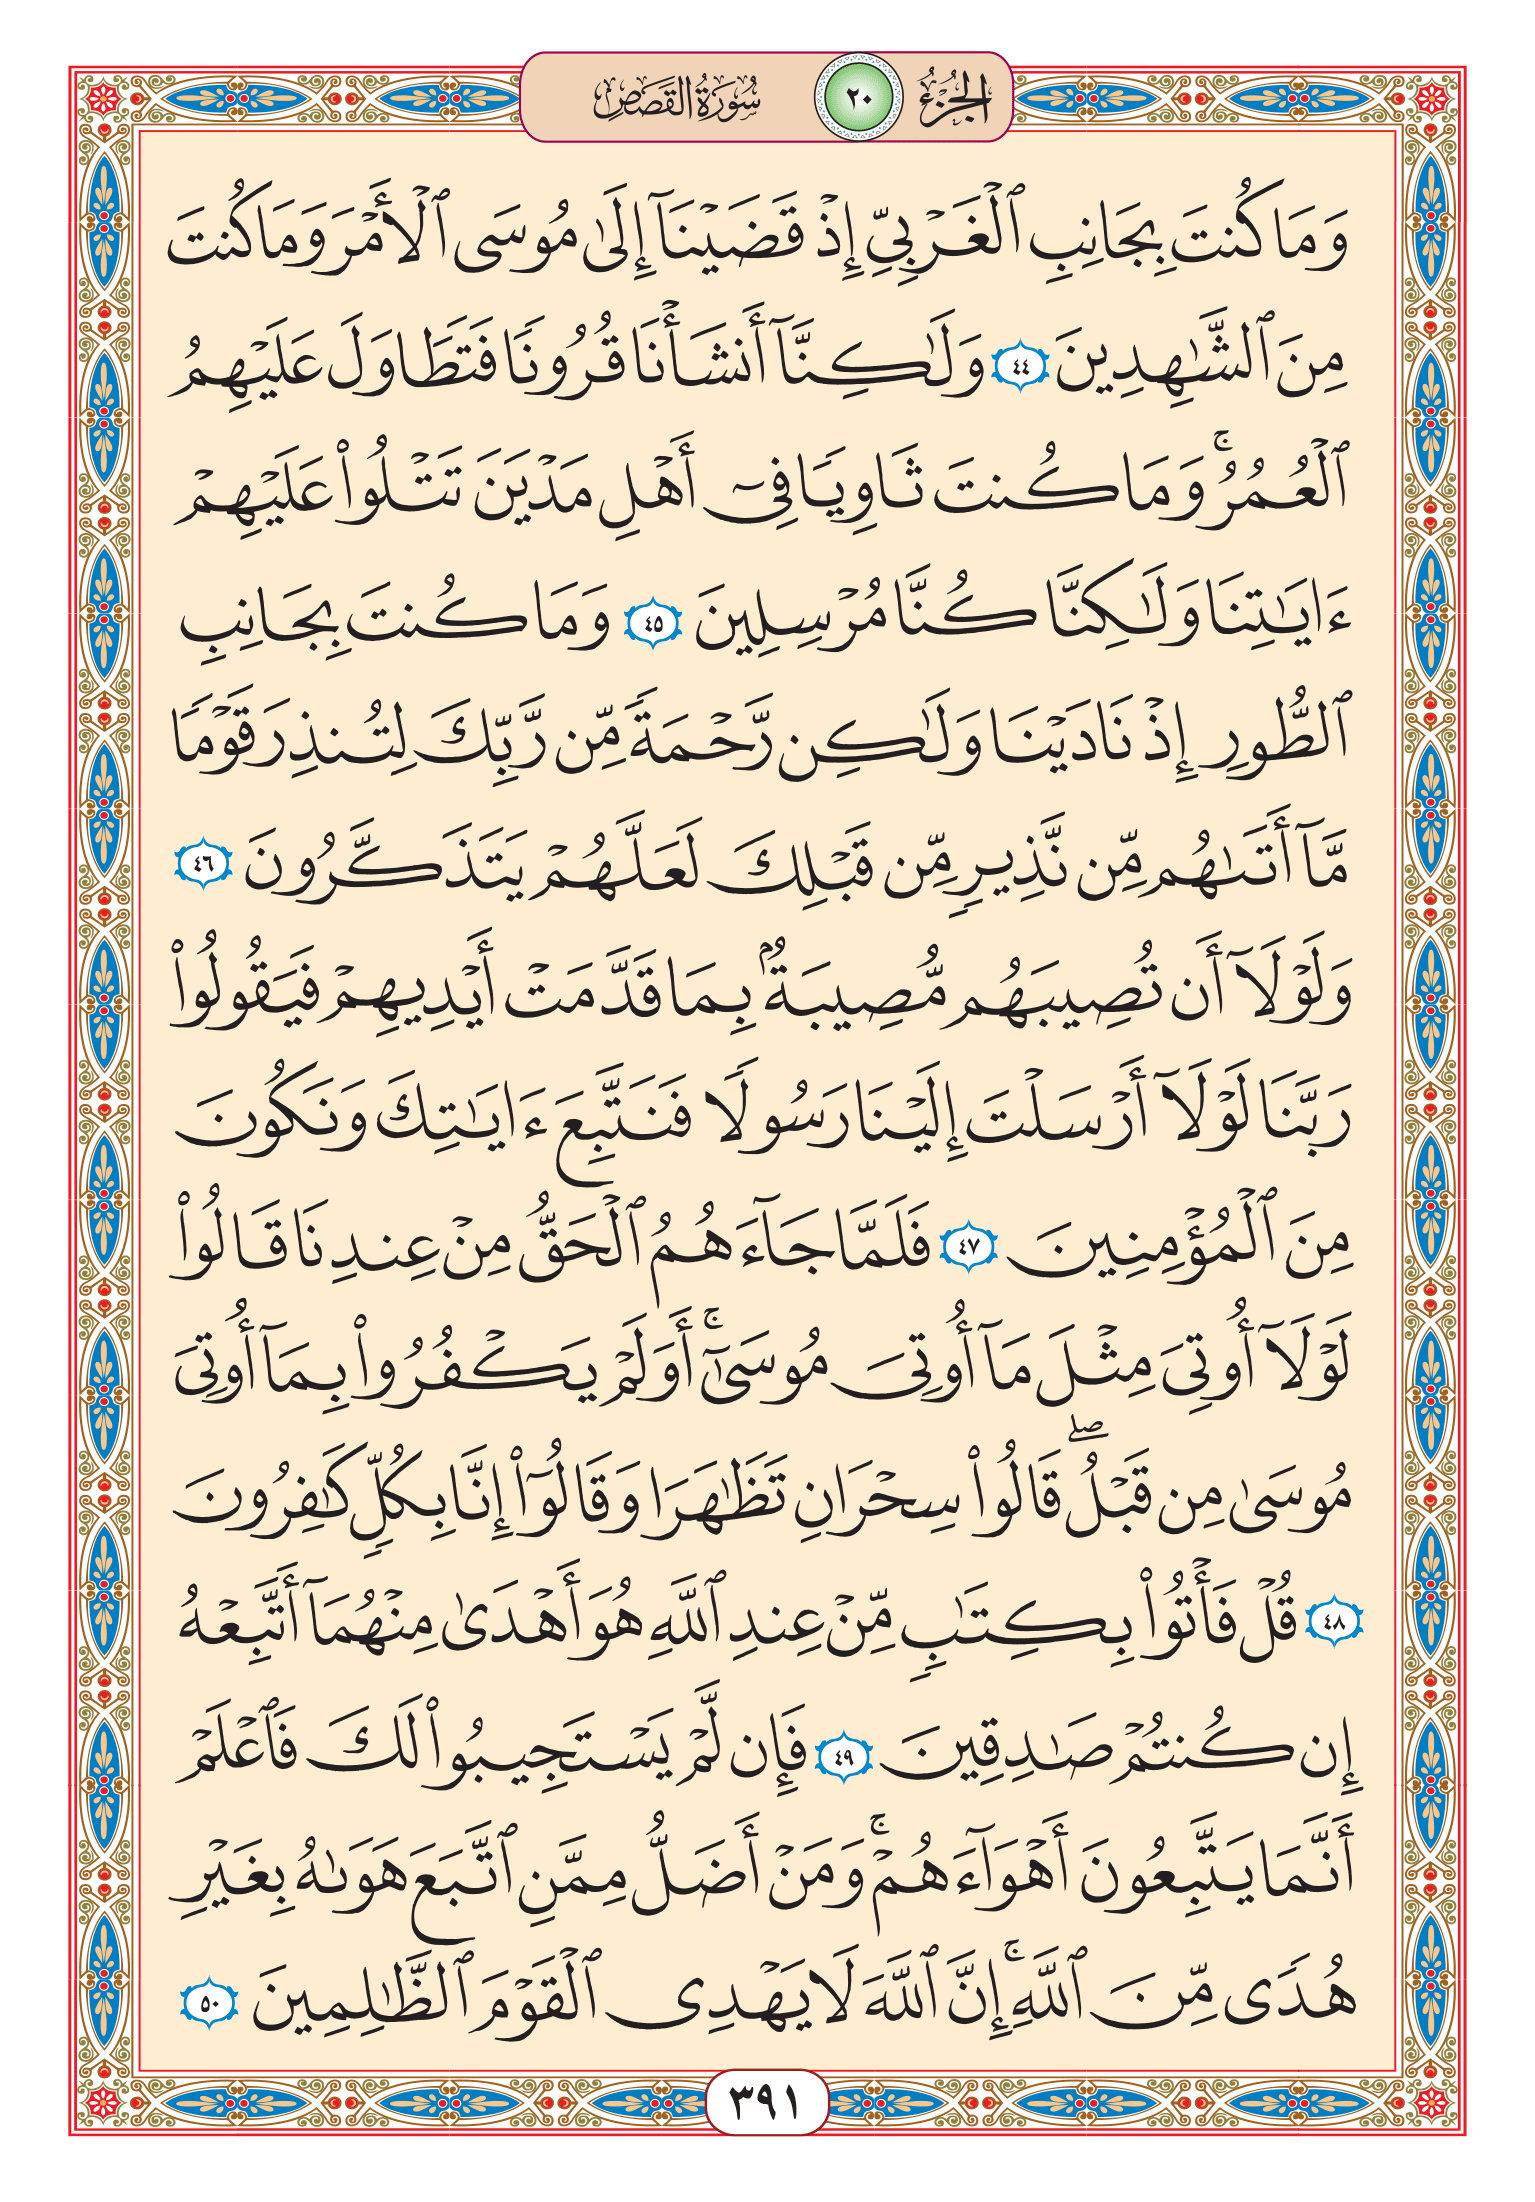 الجزء ٢٠ سورة القصص
وَمَا كُنتَ بِجَانِبِ ٱلْغَرْبِيِّ إِذْ قَضَيْنَآ إِلَىٰ مُوسَى ٱلْأَمْرَ وَمَا كُنتَ
مِنَ ٱلشَّٰهِدِينَ ٤٤ وَلَٰكِنَّآ أَنشَأْنَا قُرُونًا فَتَطَاوَلَ عَلَيْهِمُ
ٱلْعُمُرُ ۚ وَمَا كُنتَ ثَاوِيًا فِىٓ أَهْلِ مَدْيَنَ تَتْلُوا۟ عَلَيْهِمْ
ءَايَٰتِنَا وَلَٰكِنَّا كُنَّا مُرْسِلِينَ ٤٥ وَمَا كُنتَ بِجَانِبِ
ٱلطُّورِ إِذْ نَادَيْنَا وَلَٰكِن رَّحْمَةً مِّن رَّبِّكَ لِتُنذِرَ قَوْمًا
مَّآ أَتَىٰهُم مِّن نَّذِيرٍ مِّن قَبْلِكَ لَعَلَّهُمْ يَتَذَكَّرُونَ ٤٦
وَلَوْلَآ أَن تُصِيبَهُم مُّصِيبَةٌۢ بِمَا قَدَّمَتْ أَيْدِيهِمْ فَيَقُولُوا۟
رَبَّنَا لَوْلَآ أَرْسَلْتَ إِلَيْنَا رَسُولًا فَنَتَّبِعَ ءَايَٰتِكَ وَنَكُونَ
مِنَ ٱلْمُؤْمِنِينَ ٤٧ فَلَمَّا جَآءَهُمُ ٱلْحَقُّ مِنْ عِندِنَا قَالُوا۟
لَوْلَآ أُوتِىَ مِثْلَ مَآ أُوتِىَ مُوسَىٰٓ ۚ أَوَلَمْ يَكْفُرُوا۟ بِمَآ أُوتِىَ
مُوسَىٰ مِن قَبْلُ ۖ قَالُوا۟ سِحْرَانِ تَظَٰهَرَا وَقَالُوٓا۟ إِنَّا بِكُلٍّ كَٰفِرُونَ
٤٨ قُلْ فَأْتُوا۟ بِكِتَٰبٍ مِّنْ عِندِ ٱللَّهِ هُوَ أَهْدَىٰ مِنْهُمَآ أَتَّبِعْهُ
إِن كُنتُمْ صَٰدِقِينَ ٤٩ فَإِن لَّمْ يَسْتَجِيبُوا۟ لَكَ فَٱعْلَمْ
أَنَّمَا يَتَّبِعُونَ أَهْوَآءَهُمْ ۚ وَمَنْ أَضَلُّ مِمَّنِ ٱتَّبَعَ هَوَىٰهُ بِغَيْرِ
هُدًى مِّنَ ٱللَّهِ ۚ إِنَّ ٱللَّهَ لَا يَهْدِى ٱلْقَوْمَ ٱلظَّٰلِمِينَ ٥٠
٣٩١